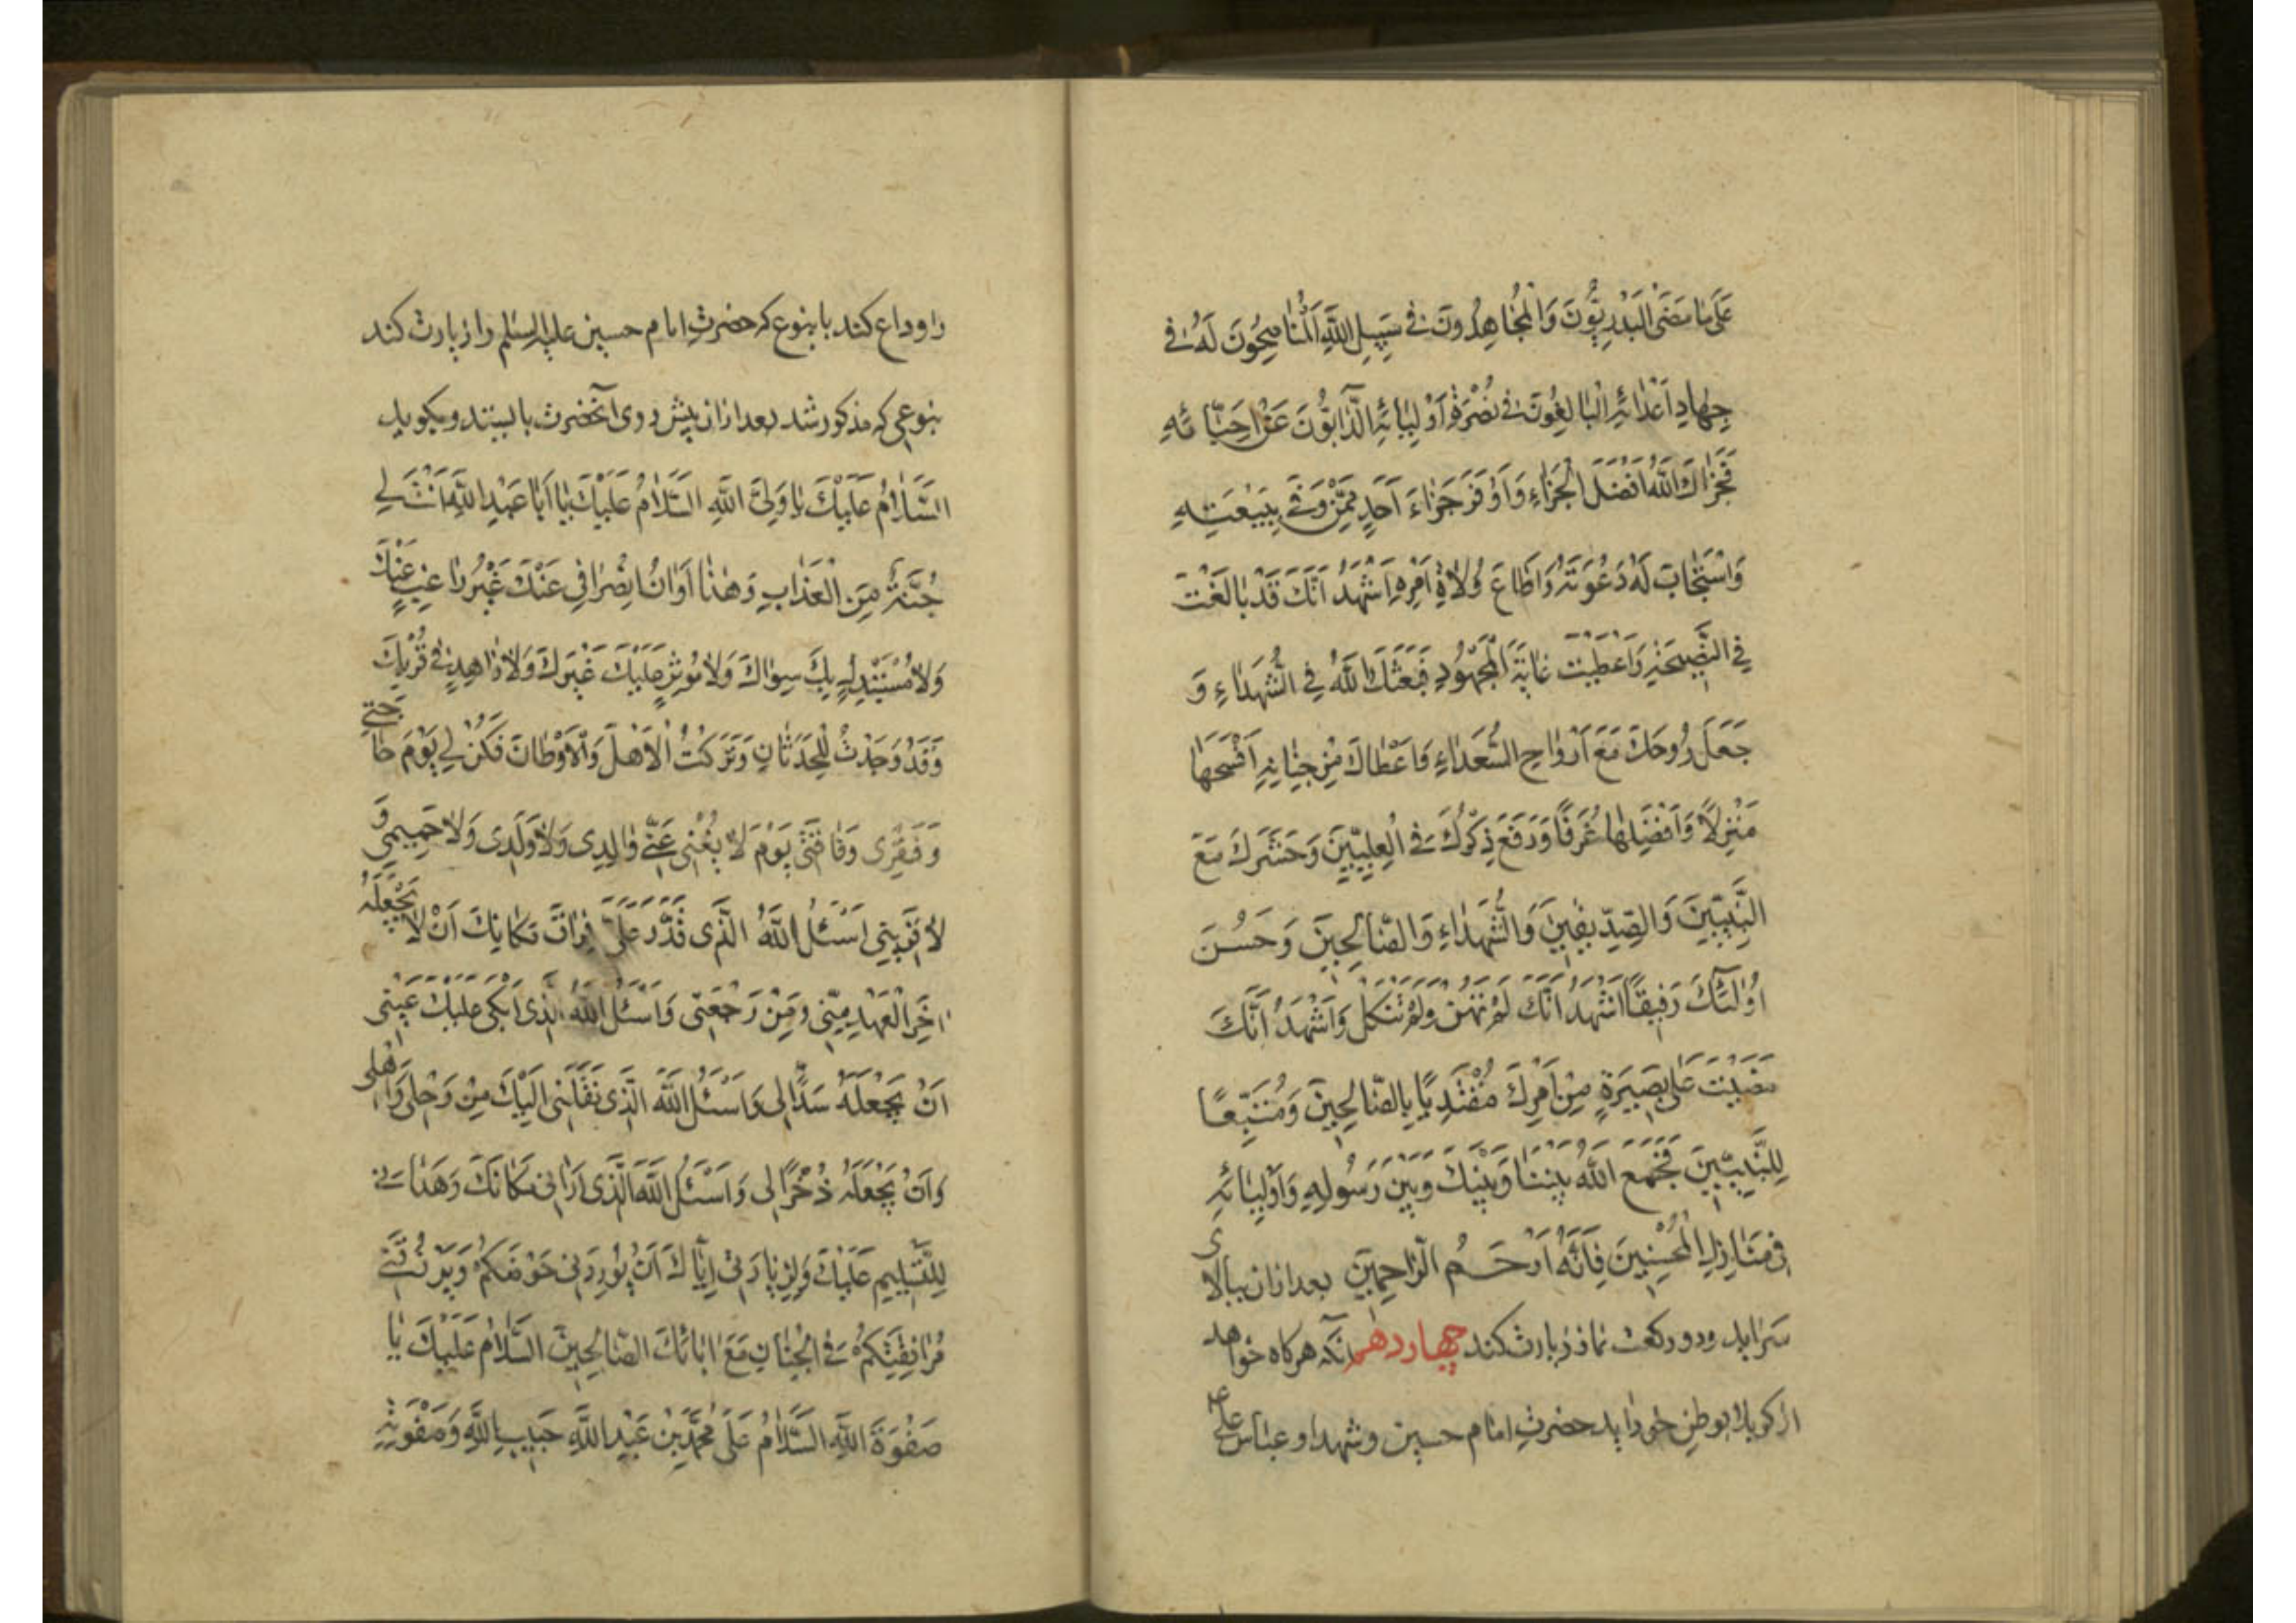 عَلَىٰ مَا مَضَى الْبَدْرِيُّونَ وَالْمُجَاهِدُونَ فِي سَبِيلِ اللَّهِ الْمُنَاصِحُونَ لَهُ فِي
جِهَادِ اَعْدَائِهِ الْبَالِغُونَ فِي نُصْرَةِ اَوْلِيَائِهِ الذَّابُّونَ عَنْ اَحِبَّائِهِ
فَجَزَاكَ اللَّهُ اَفْضَلَ الْجَزَاءِ وَاَوْفَرَ جَزَاءَ اَحَدٍ مِمَّنْ وَفَى بِبَيْعَتِهِ
وَاسْتَجَابَ لَهُ دَعْوَتَهُ وَاَطَاعَ وُلَاةَ اَمْرِهِ اَشْهَدُ اَنَّكَ قَدْ بَالَغْتَ
فِي النَّصِيحَةِ وَاَعْطَيْتَ غَايَةَ الْمَجْهُودِ فَبَعَثَكَ اللَّهُ فِي الشُّهَدَاءِ وَ
جَعَلَ رُوحَكَ مَعَ اَرْوَاحِ السُّعَدَاءِ وَاَعْطَاكَ مِنْ جِنَانِهِ اَفْسَحَهَا
مَنْزِلًا وَاَفْضَلَهَا غُرَفًا وَرَفَعَ ذِكْرَكَ فِي الْعِلِّيِّينَ وَحَشَرَكَ مَعَ
النَّبِيِّينَ وَالصِّدِّيقِينَ وَالشُّهَدَاءِ وَالصَّالِحِينَ وَحَسُنَ
اُولٰئِكَ رَفِيقًا اَشْهَدُ اَنَّكَ لَمْ تَهِنْ وَلَمْ تَنْكُلْ وَاَشْهَدُ اَنَّكَ
مَضَيْتَ عَلَى بَصِيرَةٍ مِنْ اَمْرِكَ مُقْتَدِيًا بِالصَّالِحِينَ وَمُتَّبِعًا
لِلنَّبِيِّينَ فَجَمَعَ اللَّهُ بَيْنَنَا وَبَيْنَكَ وَبَيْنَ رَسُولِهِ وَاَوْلِيَائِهِ
فِي مَنَازِلِ الْمُحْسِنِينَ فَاِنَّهُ اَرْحَمُ الرَّاحِمِينَ بعد ازان ببالای
سر اید و دو رکعت نماز زیارت کند چهاردهم آنکه هرکاه خواهد
از کربلا بوطن خود اید حضرتِ امام حسین و شهدا و عباس علی
را وداع کند باینوع که حضرتِ امام حسین علیه السلم را زیارت کند
بنوعی که مذکور شد بعد ازان پیش روی آنحضرت بایستد و بکوید
السَّلَامُ عَلَيْكَ يَا وَلِيَّ اللَّهِ السَّلَامُ عَلَيْكَ يَا اَبَا عَبْدِ اللَّهِ اَنْتَ لِي
جُنَّةٌ مِنَ الْعَذَابِ وَهٰذَا اَوَانُ انْصِرَافِي عَنْكَ غَيْرُ رَاغِبٍ عَنْكَ
وَلَا مُسْتَبْدِلٍ بِكَ سِوَاكَ وَلَا مُوْثِرٍ عَلَيْكَ غَيْرَكَ وَلَا زَاهِدٍ فِي قُرْبِكَ
وَقَدْ وَجَدْتُ لِلْحَدَثَانِ وَتَرَكْتُ الْاَهْلَ وَالْاَوْطَانَ فَكُنْ لِي يَوْمَ حَاجَتِي
وَفَقْرِى وَفَاقَتِي يَوْمَ لَا يُغْنِى عَنِّي وَالِدِى وَلَا وَلَدِى وَلَا حَمِيمِي وَ
لَا قَرِيبِي اَسْئَلُ اللَّهَ الَّذِى قَدَّرَ عَلَيَّ فِرَاقَ مَكَانِكَ اَنْ لَا يَجْعَلَهُ
اٰخِرَ الْعَهْدِ مِنِّي وَمِنْ رَجْعَتِي وَاَسْئَلُ اللَّهَ الَّذِى اَبْكَى عَلَيْكَ عَيْنِي
اَنْ يَجْعَلَهُ سَنَدًا لِى وَاَسْئَلُ اللَّهَ الَّذِى نَقَلَنِي اِلَيْكَ مِنْ رَحْلِي وَاَهْلِي
وَاَنْ يَجْعَلَهُ ذُخْرًا لِى وَاَسْئَلُ اللَّهَ الَّذِى اَرَانِي مَكَانَكَ وَهَدَانِي
لِلتَّسْلِيمِ عَلَيْكَ وَلِزِيَارَتِي اِيَّاكَ اَنْ يُورِدَنِي حَوْضَكُمْ وَيَرْزُقَنِي
مُرَافَقَتَكُمْ فِي الْجِنَانِ مَعَ اٰبَائِكَ الصَّالِحِينَ السَّلَامُ عَلَيْكَ يَا
صَفْوَةَ اللَّهِ السَّلَامُ عَلَى مُحَمَّدِ بْنِ عَبْدِ اللَّهِ حَبِيبِ اللَّهِ وَصَفْوَتِهِ